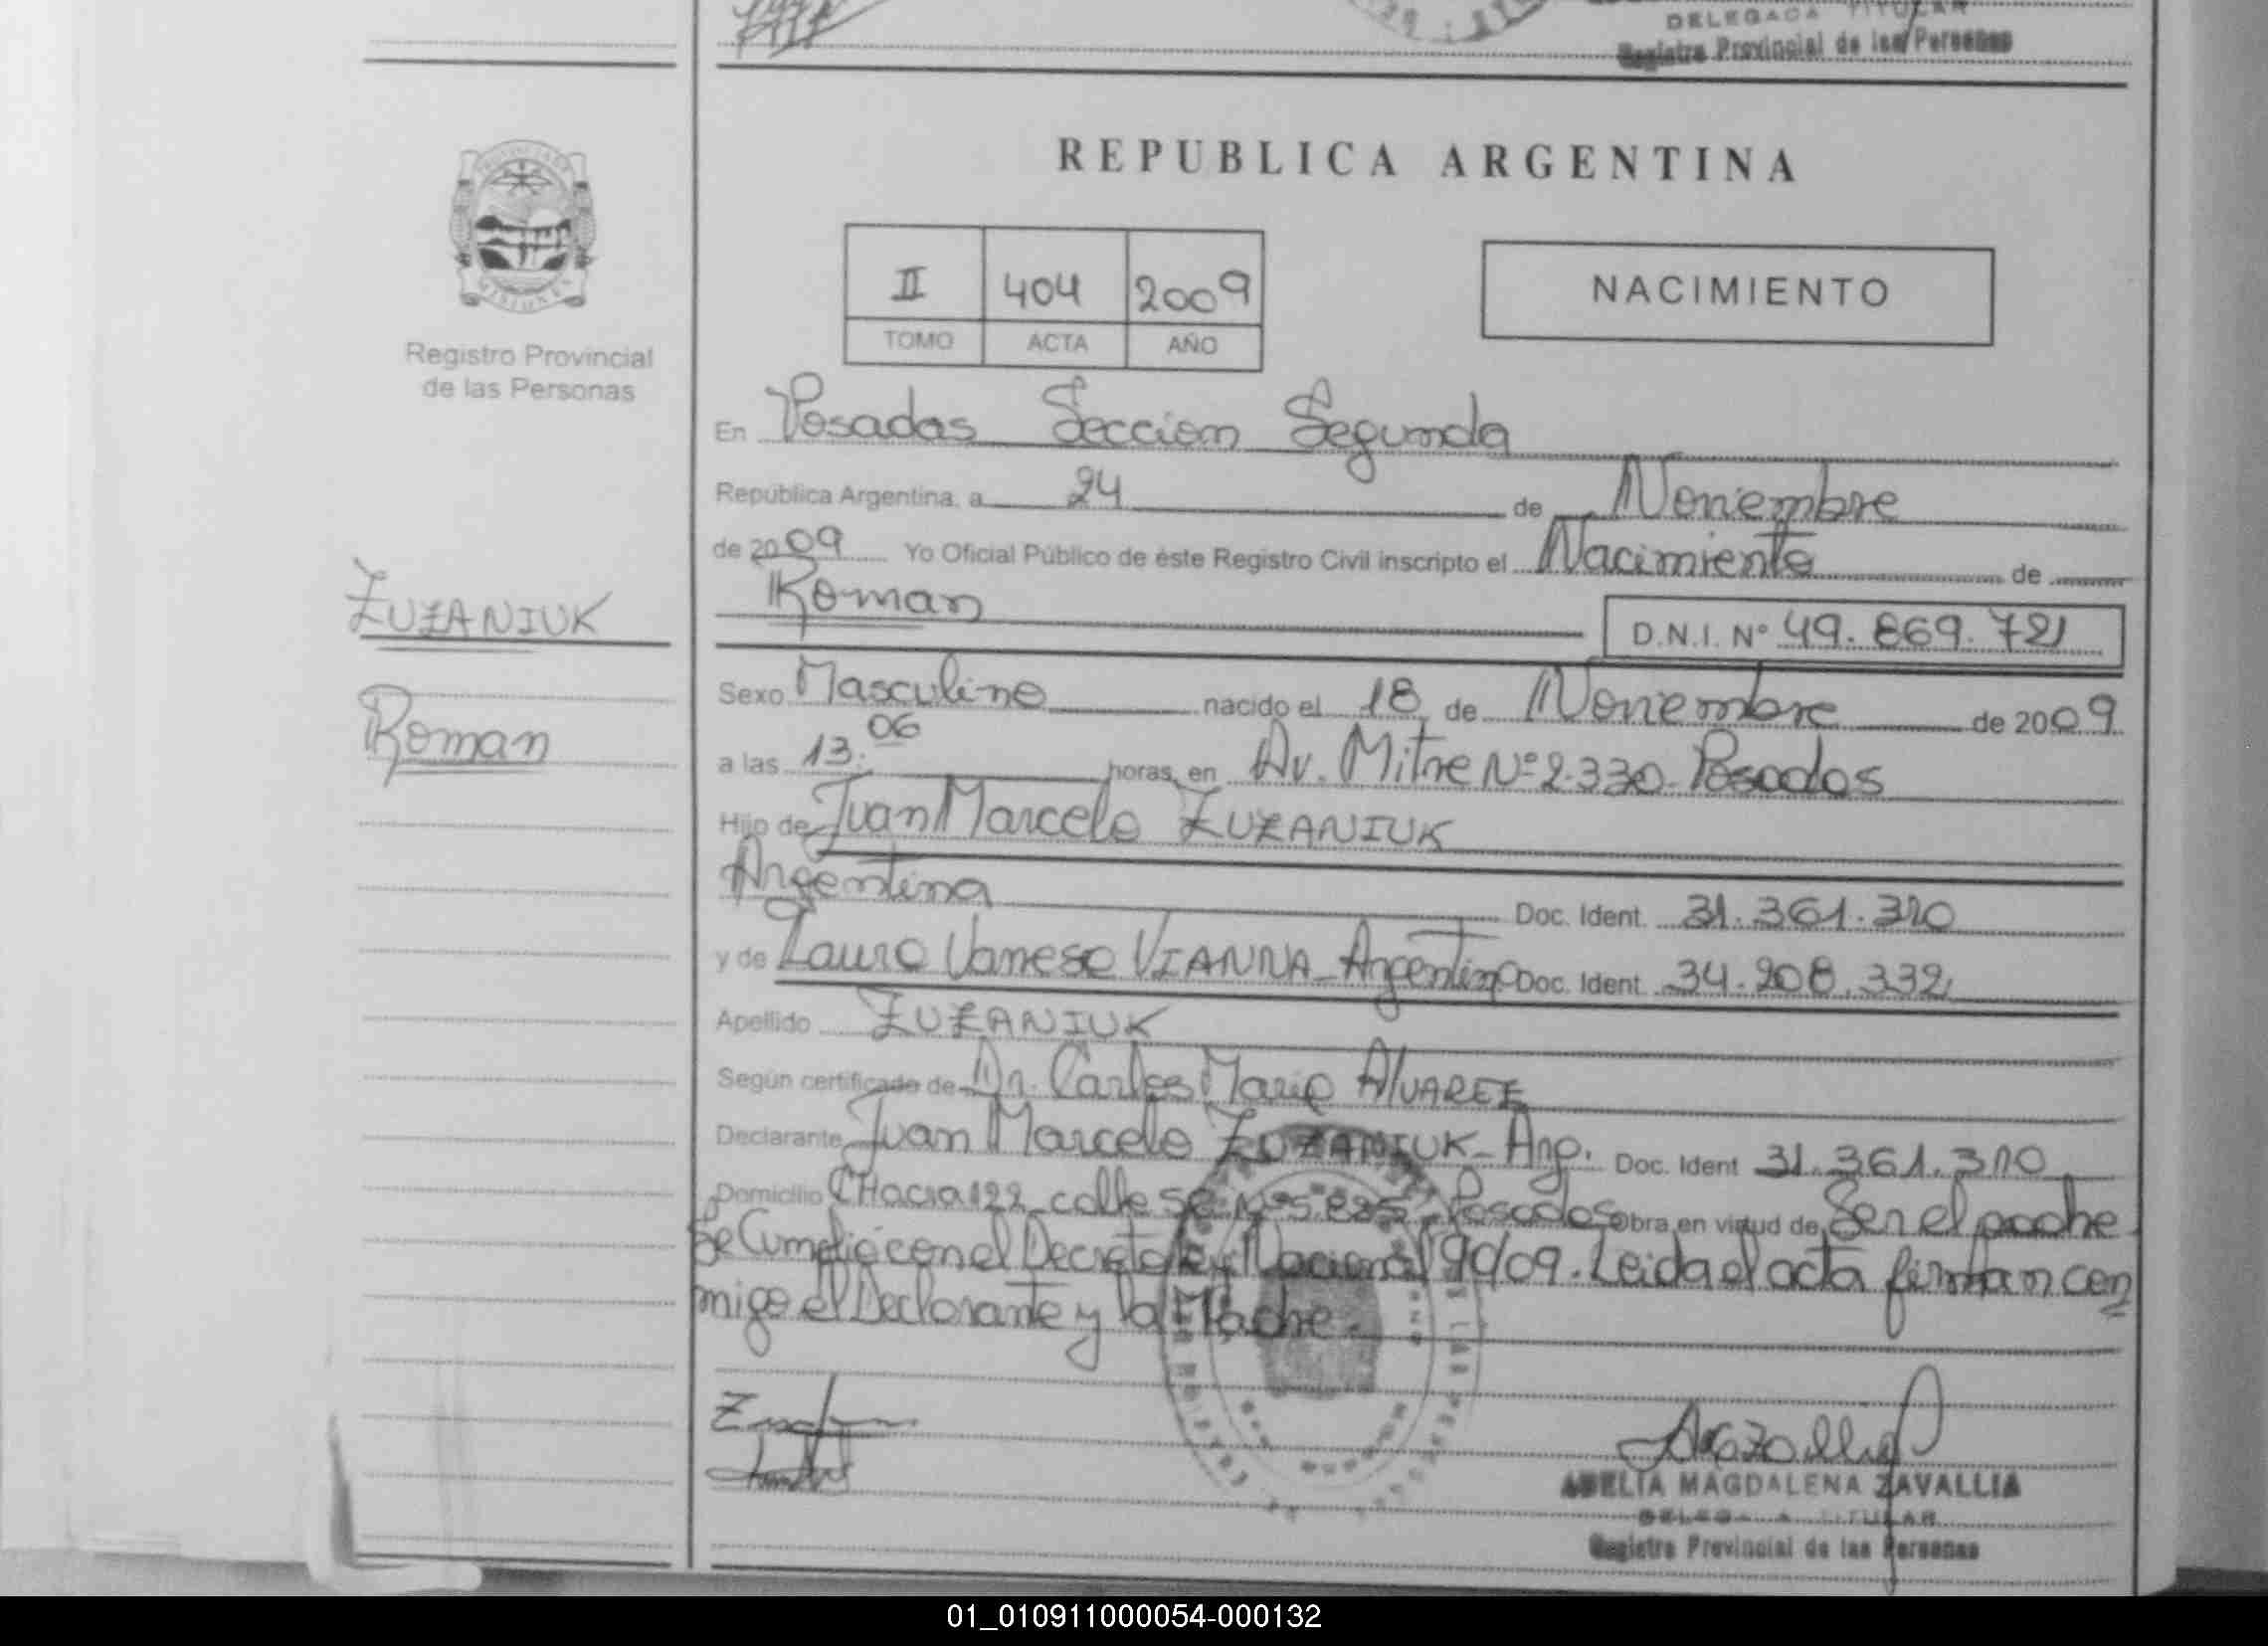 DELEGADA TITULAR
Registro Provincial de las Personas
REPUBLICA ARGENTINA
PROVINCIA DE
MISIONES
Registro Provincial
de las Personas
II 404 2009
TOMO ACTA AÑO
NACIMIENTO
En Posadas Seccion Segunda
República Argentina, a 24 de Noviembre
de 2009 Yo Oficial Público de éste Registro Civil inscripto el Nacimiento de
Roman
D.N.I. Nº 49.869.721
ZUZANIUK
Roman
Sexo Masculino nacido el 18 de Noviembre de 2009
a las 13:06 horas, en Av. Mitre Nº 2.330- Posadas
Hijo de Juan Marcelo ZUZANIUK
Argentina Doc. Ident. 31.361.310
y de Laura Vanesa VIANNA - Argentina Doc. Ident. 34.208.332
Apellido ZUZANIUK
Según certificado de Dr. Carlos Mario ALVAREZ
Declarante Juan Marcelo ZUZANIUK - Arg. Doc. Ident 31.361.310
Domicilio CHacra 122 calle Nº 5.825 - Posadas obra en virtud de Ser el padre
Se Cumplio con el Decreto Nacional 90/09. Leida el acta firman con
migo el Declarante y la Madre.
ADELIA MAGDALENA ZAVALLIA
DELEGADA TITULAR
Registro Provincial de las Personas
01_010911000054-000132